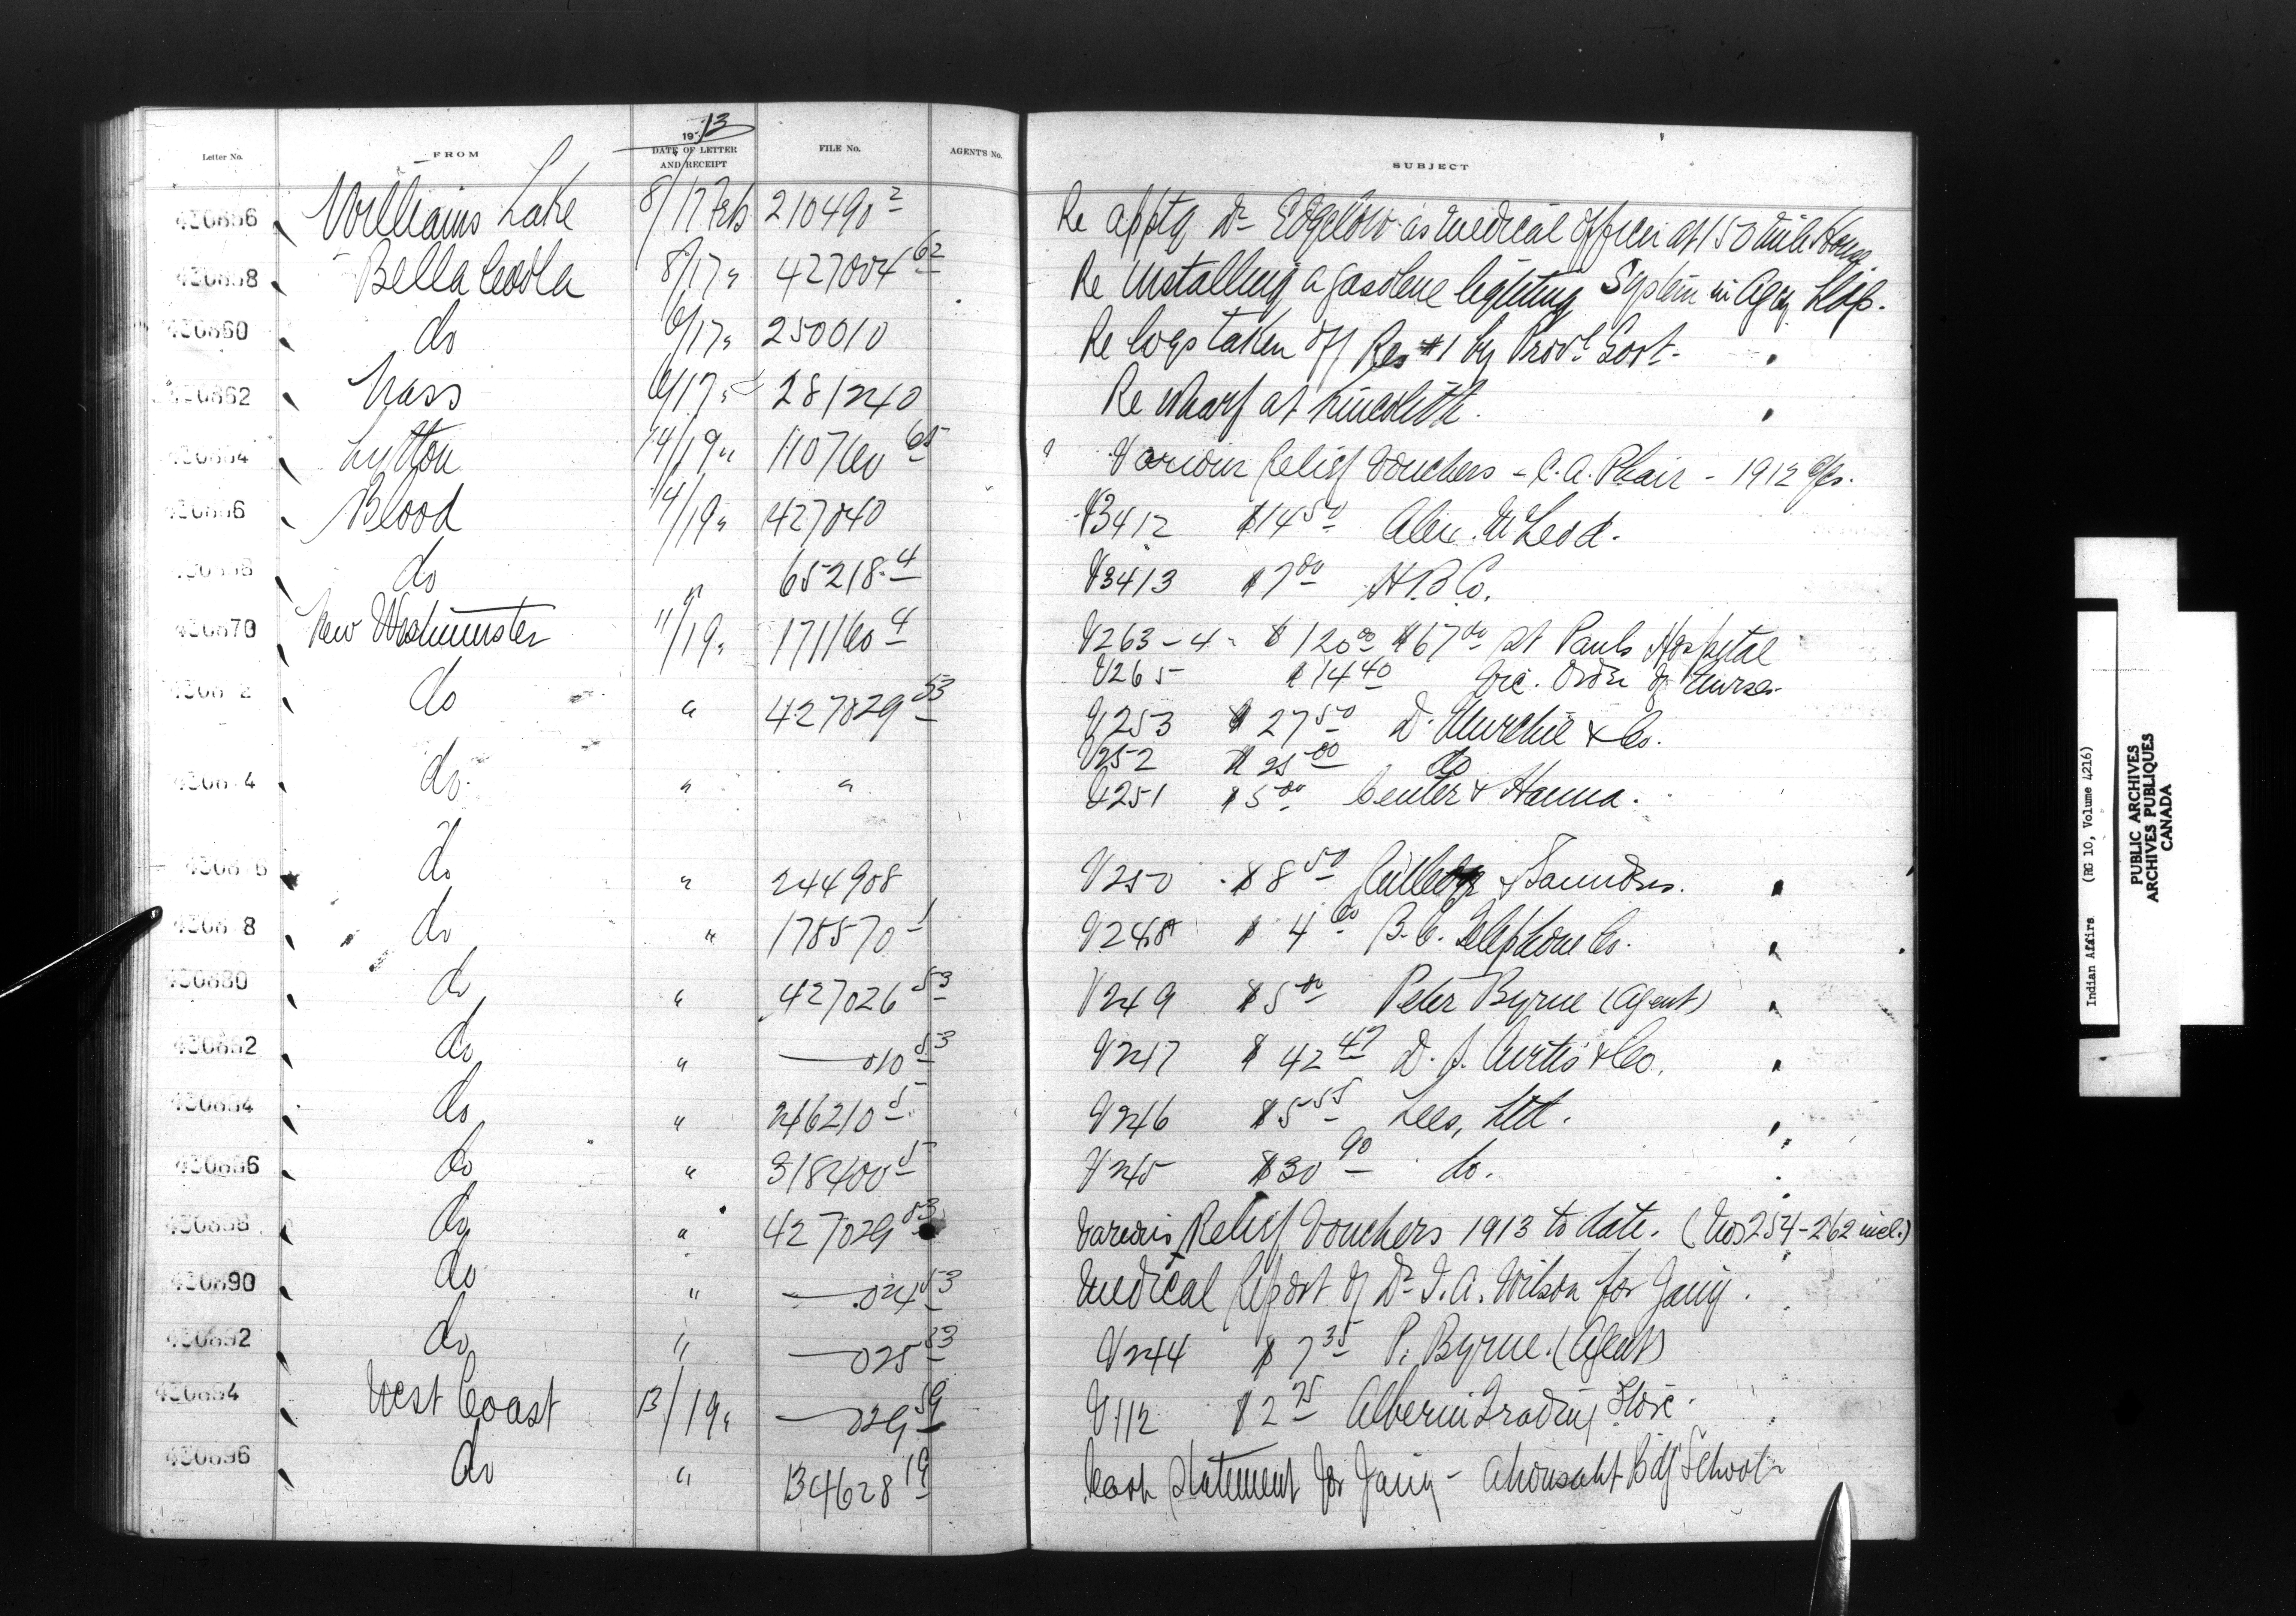 1913
Letter No. FROM DATE OF LETTER AND RECEIPT FILE No. AGENT'S No. SUBJECT
430856 Williams Lake 8/17 Feb 210490 2 Re apptg Dr Edgelow as medical officer at 150 Mile House
430858 Bella Coola 8/17 " 427004 62 Re installing a gasolene lighting system in Agcy bldg.
430860 do 6/17 " 250010 Re logs taken off Res #1 by Provl Govt.
430862 Nass 6/17 " 281240 Re wharf at Kincolith.
430864 Lytton 14/19 " 110760 65 Various relief vouchers - C. A. Phair - 1912
430866 Blood 14/19 " 427040 V3412 $14 50 Alex. McLeod.
do " 65218 4 V3413 $7 00 H.B.Co.
430870 New Westminster 11/19 " 171160 4 V263-4 - $120 00 $67 00 St Pauls Hospital
V265 $14 40 Vic. Order of Nurses
4308 2 do " 427029 53 V253 $27 50 D. Murchie & Co.
V252 $25 00 do
4308 4 do " " V251 $5 00 Center & Hanna.
4308 6 do " 244908 V250 $8 50 Saunders.
4308 8 do " 178570 1 V248 $4 60 B.C. Telephone Co.
430880 do " 427026 53 V249 $5 00 Peter Byrne (Agent)
430882 do " —010 53 V247 $42 47 D. S. Curtis & Co.
430884 do " 246210 5 V246 $5 55 Lees, Ltd.
430886 do " 318400 5 V245 $30 90 do.
430888 do " 427029 53 Various Relief Vouchers 1913 to date. (Nos 254-262 incl.)
430890 do " —024 53 Medical Report of Dr. I. A. Wilson for Jany.
430892 do " —025 53 V244 $7 35 P. Byrne. (Agent)
430894 West Coast 13/19 " —029 59 V112 $2 75 Alberni Trading Store.
430896 do " 134628 19 Cash Statement for Jany - Ahousaht Bdg School
Indian Affairs (RG 10, Volume 4216)
PUBLIC ARCHIVES
ARCHIVES PUBLIQUES
CANADA